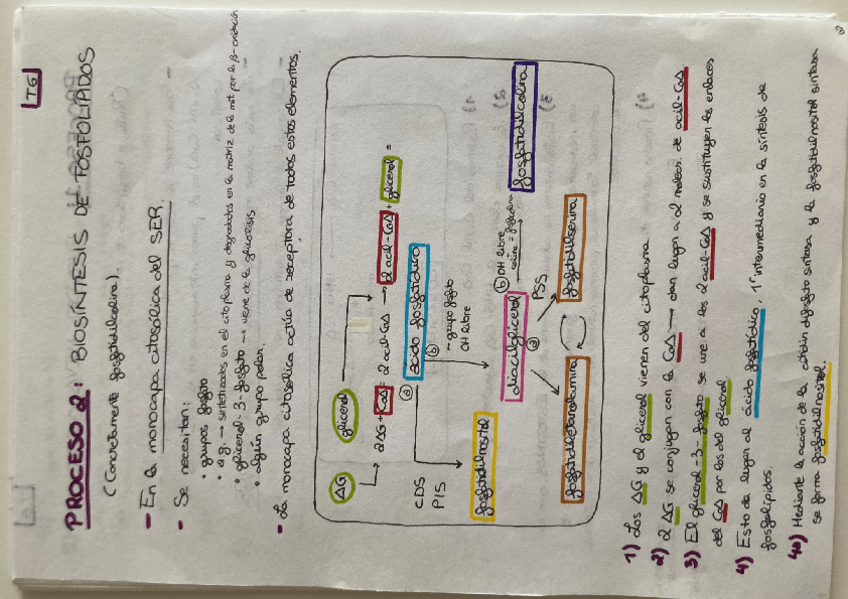 T6
PROCESO 2: BIOSÍNTESIS DE FOSFOLÍPIDOS
(Concretamente fosfatidilcolina).
- En la monocapa citosólica del SER.
- Se necesitan:
• grupos fosfato
• a.g. → sintetizados en el citoplasma y degradados en la matriz de la mit por la β-oxidación
• glicerol-3-fosfato → viene de la glucólisis
• algún grupo polar.
- La monocapa citosólica actúa de receptora de todos estos elementos.
AG
glicerol
2AG + CoA = 2 acil-CoA → 2 acil-CoA + glicerol =
ácido fosfatídico
a
b
CDS
PIS
- grupo fosfato
OH libre
fosfatidilinositol
diacilglicerol
b OH libre
colina
fosfatidilcolina
a
PSS
fosfatidiletanolamina
fosfatidilserina
1) Los AG y el glicerol vienen del citoplasma
2) 2 AG se conjugan con la CoA → dan lugar a 2 molécs. de acil-CoA.
3) El glicerol-3-fosfato se une a los 2 acil-CoA y se sustituyen los enlaces
del CoA por los del glicerol.
4) Esto da lugar al ácido fosfatídico, 1º intermediario en la síntesis de
fosfolípidos.
4a) Mediante la acción de la citidin difosfato sintasa y la fosfatidilinositol sintasa
se forma fosfatidilinositol.